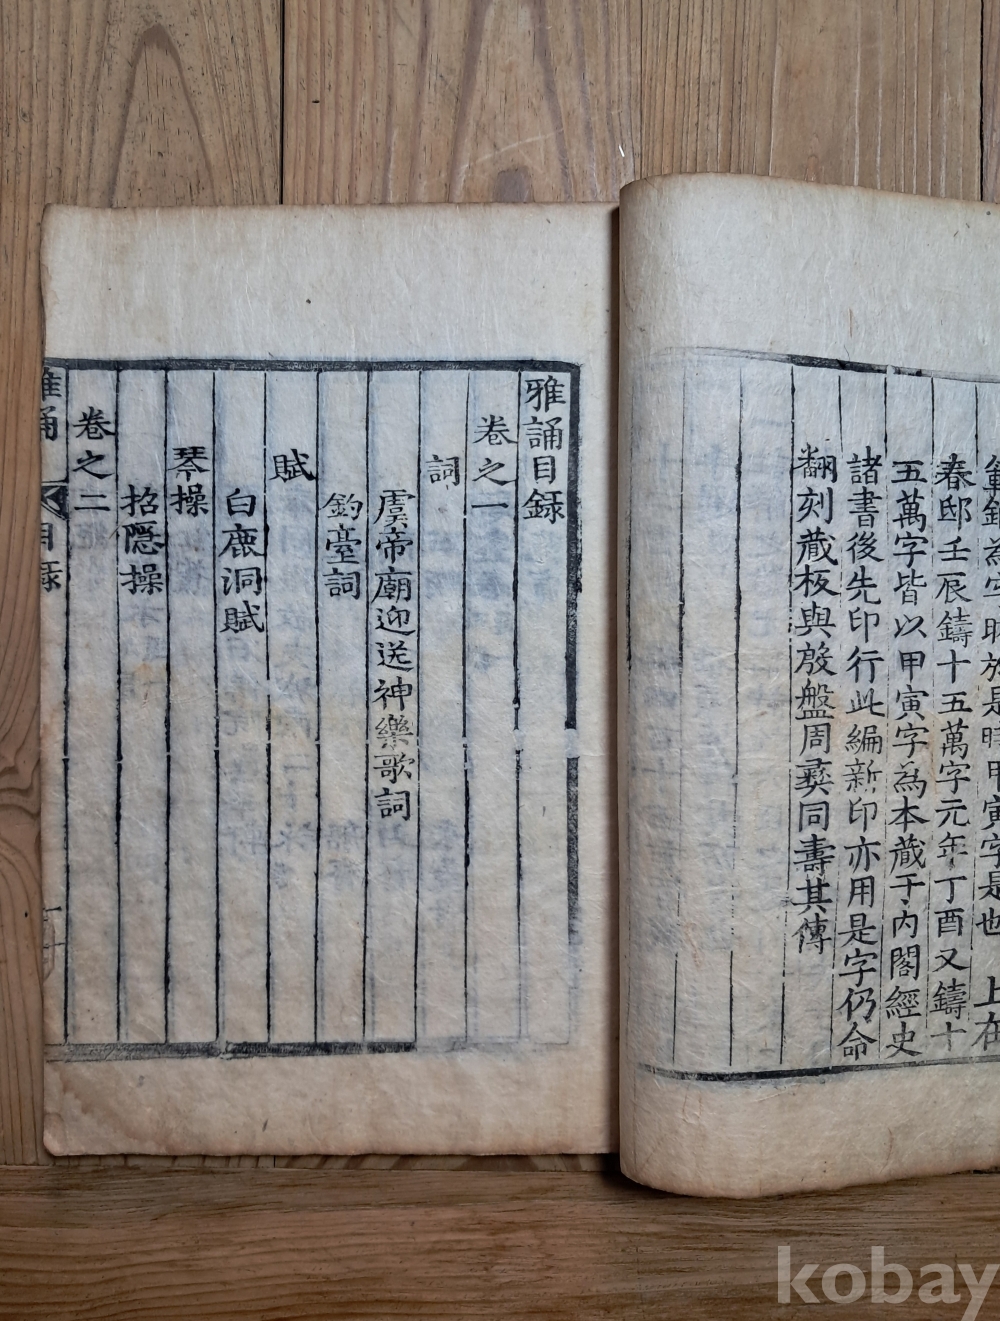 範銅為字時於是時甲寅字是也 上在
春邸壬辰鑄十五萬字元年丁酉又鑄十
五萬字皆以甲寅字為本藏于內閣經史
諸書後先印行此編新印亦用是字仍命
翻刻藏板與殷盤周彝同壽其傳
雅誦目錄
卷之一
詞
虞帝廟迎送神樂歌詞
釣臺詞
賦
白鹿洞賦
琴操
招隱操
卷之二
雅誦 目錄
kobay